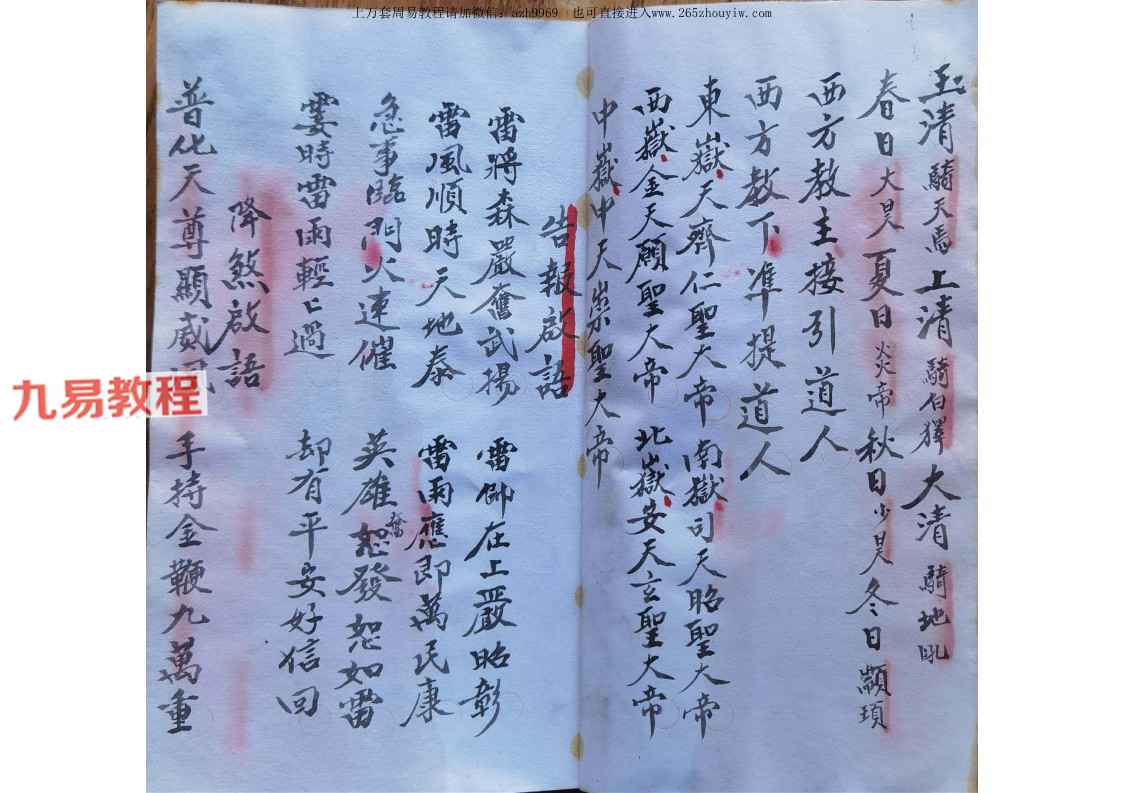 上万套周易教程请加微信：azh9969 也可直接进入www.265zhouyiw.com
玉清騎天馬上清騎白獬大清騎地吼
春日大昊夏日炎帝秋日少昊冬日顓頊
西方教主接引道人
西方教下准提道人
東嶽天齊仁聖大帝南嶽司天昭聖大帝
西嶽金天願聖大帝北嶽安天玄聖大帝
中嶽中天崇聖大帝
告報啟語
雷將森嚴奮武揚 雷帥在上嚴昭彰
雷風順時天地泰 雷雨應即萬民康
急事臨門火速催 英雄恕奮發恕如雷
霎時雷雨輕〻過 却有平安好信回
降煞啟語
普化天尊顯威 手持金鞭九萬重
九易教程